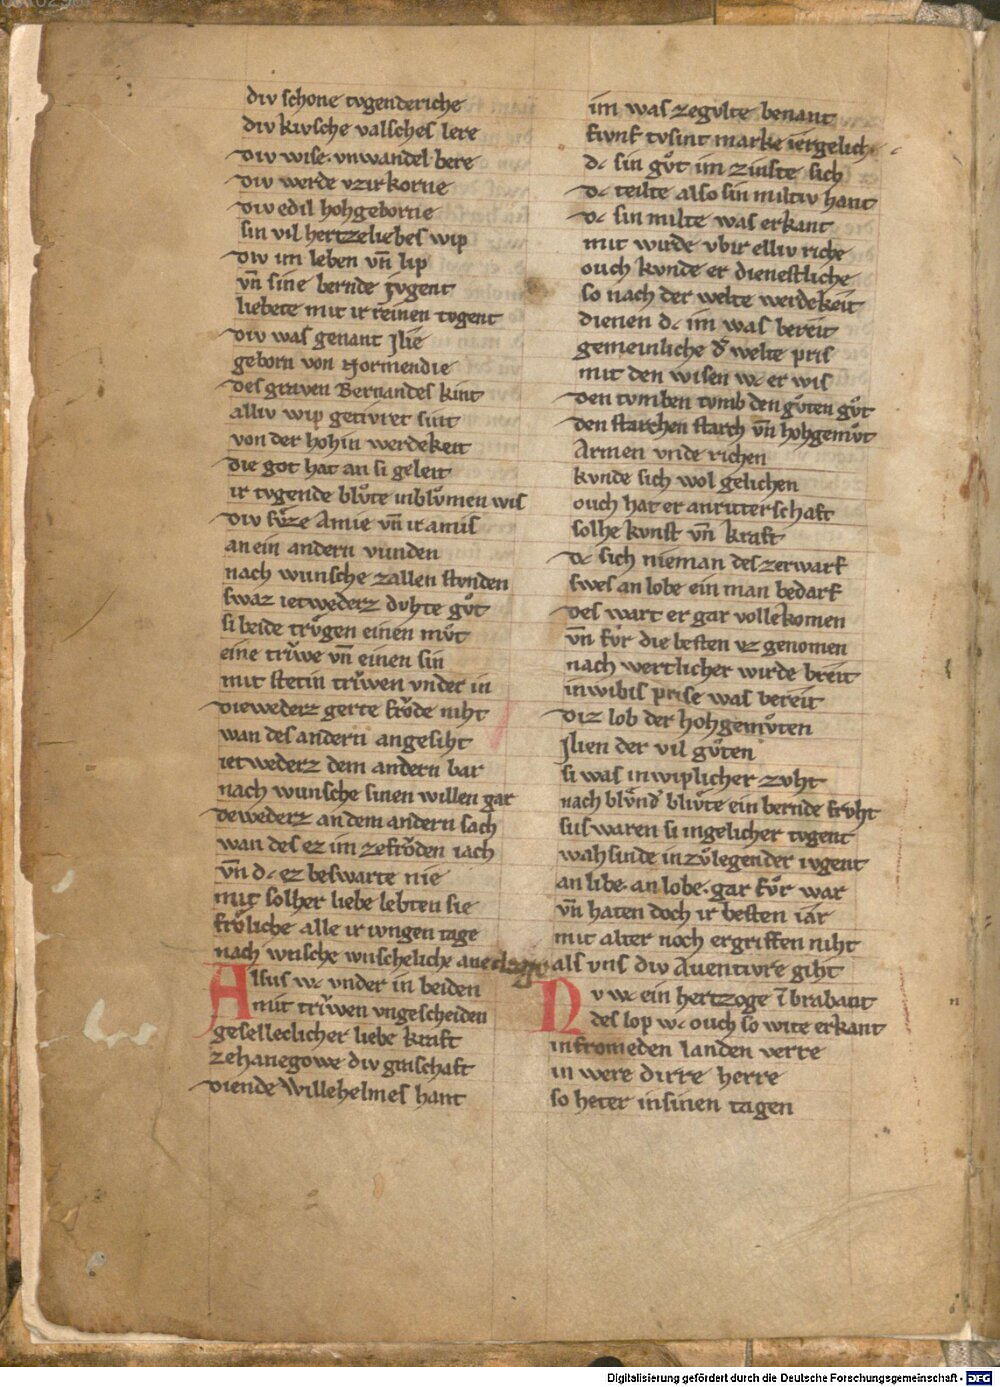 div schone tvgenderiche
div kivsche valsches lere
div wise vnwandel bere
div werde vzirkorne
div edil hohgeborne
sin vil hertzeliebes wip
div im leben vn̄ lip
vn̄ sine bernde jvgent
liebete mit ir reinen tvgent
div was genant Jlie
geborn von Normendie
des graven Bernandes kint
alliv wip getivret sint
von der hohin werdekeit
die got hat an si geleit
ir tvgende blvͦte inblvͦmen wis
div svͤze Amie vn̄ ir amis
an ein andern vunden
nach wunsche zallen stvnden
swaz ietwederz dvhte gvͦt
si beide trvͦgen einen mvͦt
eine triwe vn̄ einen sin
mit stetin triwen vnder in
diewederz gerte frode niht
wan des andern angesiht
ietwederz dem andern bar
nach wunsche sinen willen gar
dewederz an dem andern sach
wan des ez im zefroͮden iach
vn̄ dc ez beswarte nie
mit solher liebe lebten sie
froͤliche alle ir ivngen tage
nach wnsche wnscheliche ane
Alsus wc vnder in beiden
mit triwen vngescheiden
geselleclicher liebe kraft
zehanegowe div grascchaft
diende Willehelmes hant
im was zegvlte benant
fivnf tvsint marke iergelich
dc sin gvͦt im zinste sich
dc teilte also sin miltiv hant
dc sin milte was erkant
mit wirde vbir elliv riche
ouch kvnde er dienestliche
so nach der welte werdekeit
dienen dc im was bereit
gemeinliche d' welte pris
mit den wisen wc er wis
den tvmben tvmb den gvͦten gvͦt
den starchen starch vn̄ hohgemvͦt
Armen vnde richen
kvnde sich wol gelichen
ouch hat er an ritterschaft
solhe kvnst vn̄ kraft
dc sich nieman des zerwarf
swes an lobe ein man bedarf
des wart er gar vollekomen
vn̄ fvͤr die besten vz genomen
nach wertlicher wirde breit
in wibis prise was bereit
diz lob der hohgemvͦten
Jlien der vil gvͦten
si was in wiplicher zvht
nach blvͤnd' blivte ein bernde frvht
sus waren si in gelicher tvgent
wahsinde in zvͦlegender ivgent
an libe. an lobe. gar fvͤr war
vn̄ haten doch ir besten iar
mit alter noch ergriffen niht
als vns div Auentivre giht
Nv wc ein hertzoge ī brabant
des lop wc ouch so wite erkant
in fromeden landen verre
in were dirre herre
so heter in sinen tagen
Digitalisierung gefördert durch die Deutsche Forschungsgemeinschaft - DFG